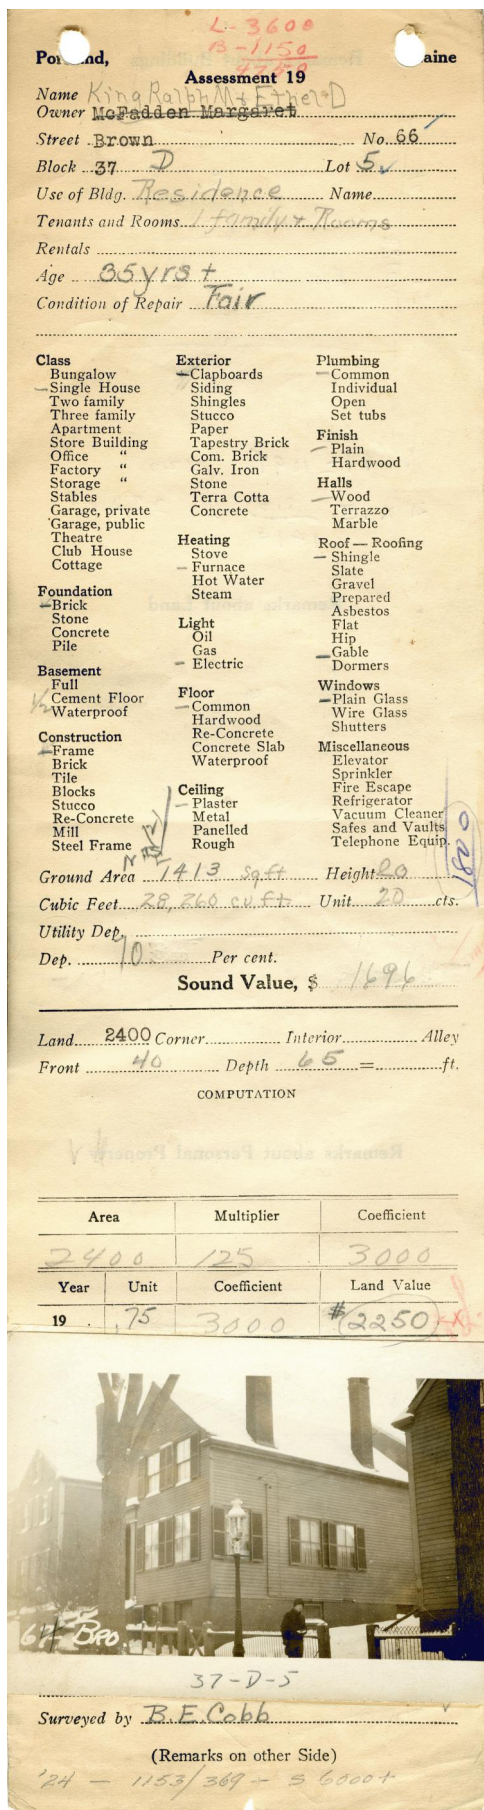 L-3600
B-1150
4750
Portland, Maine
Assessment 19
Name King Ralph M & Ethel D
Owner McFadden Margaret
Street Brown No. 66
Block 37 D Lot 5
Use of Bldg. Residence Name
Tenants and Rooms 1 family Rooms
Rentals
Age 35 yrs +
Condition of Repair Fair
Class
Bungalow
Single House
Two family
Three family
Apartment
Store Building
Office "
Factory "
Storage "
Stables
Garage, private
Garage, public
Theatre
Club House
Cottage
Foundation
Brick
Stone
Concrete
Pile
Basement
Full
1/2 Cement Floor
Waterproof
Construction
Frame
Brick
Tile
Blocks
Stucco
Re-Concrete
Mill
Steel Frame
Exterior
Clapboards
Siding
Shingles
Stucco
Paper
Tapestry Brick
Com. Brick
Galv. Iron
Stone
Terra Cotta
Concrete
Heating
Stove
Furnace
Hot Water
Steam
Light
Oil
Gas
Electric
Floor
Common
Hardwood
Re-Concrete
Concrete Slab
Waterproof
Ceiling
Plaster
Metal
Panelled
Rough
Plumbing
Common
Individual
Open
Set tubs
Finish
Plain
Hardwood
Halls
Wood
Terrazzo
Marble
Roof — Roofing
Shingle
Slate
Gravel
Prepared
Asbestos
Flat
Hip
Gable
Dormers
Windows
Plain Glass
Wire Glass
Shutters
Miscellaneous
Elevator
Sprinkler
Fire Escape
Refrigerator
Vacuum Cleaner
Safes and Vaults
Telephone Equip.
1800
Ground Area 1413 sq ft Height 20
Cubic Feet 28,260 cu ft Unit 20 cts.
Utility Dep.
Dep. 10 Per cent.
Sound Value, $ 1696
Land 2400 Corner Interior Alley
Front 40 Depth 65 = ft.
COMPUTATION
Area Multiplier Coefficient
2400 125 3000
Year Unit Coefficient Land Value
19 .75 3000 $2250
Bro.
37-D-5
Surveyed by B.E. Cobb
(Remarks on other Side)
'24 - 1153/369 - S 6000+